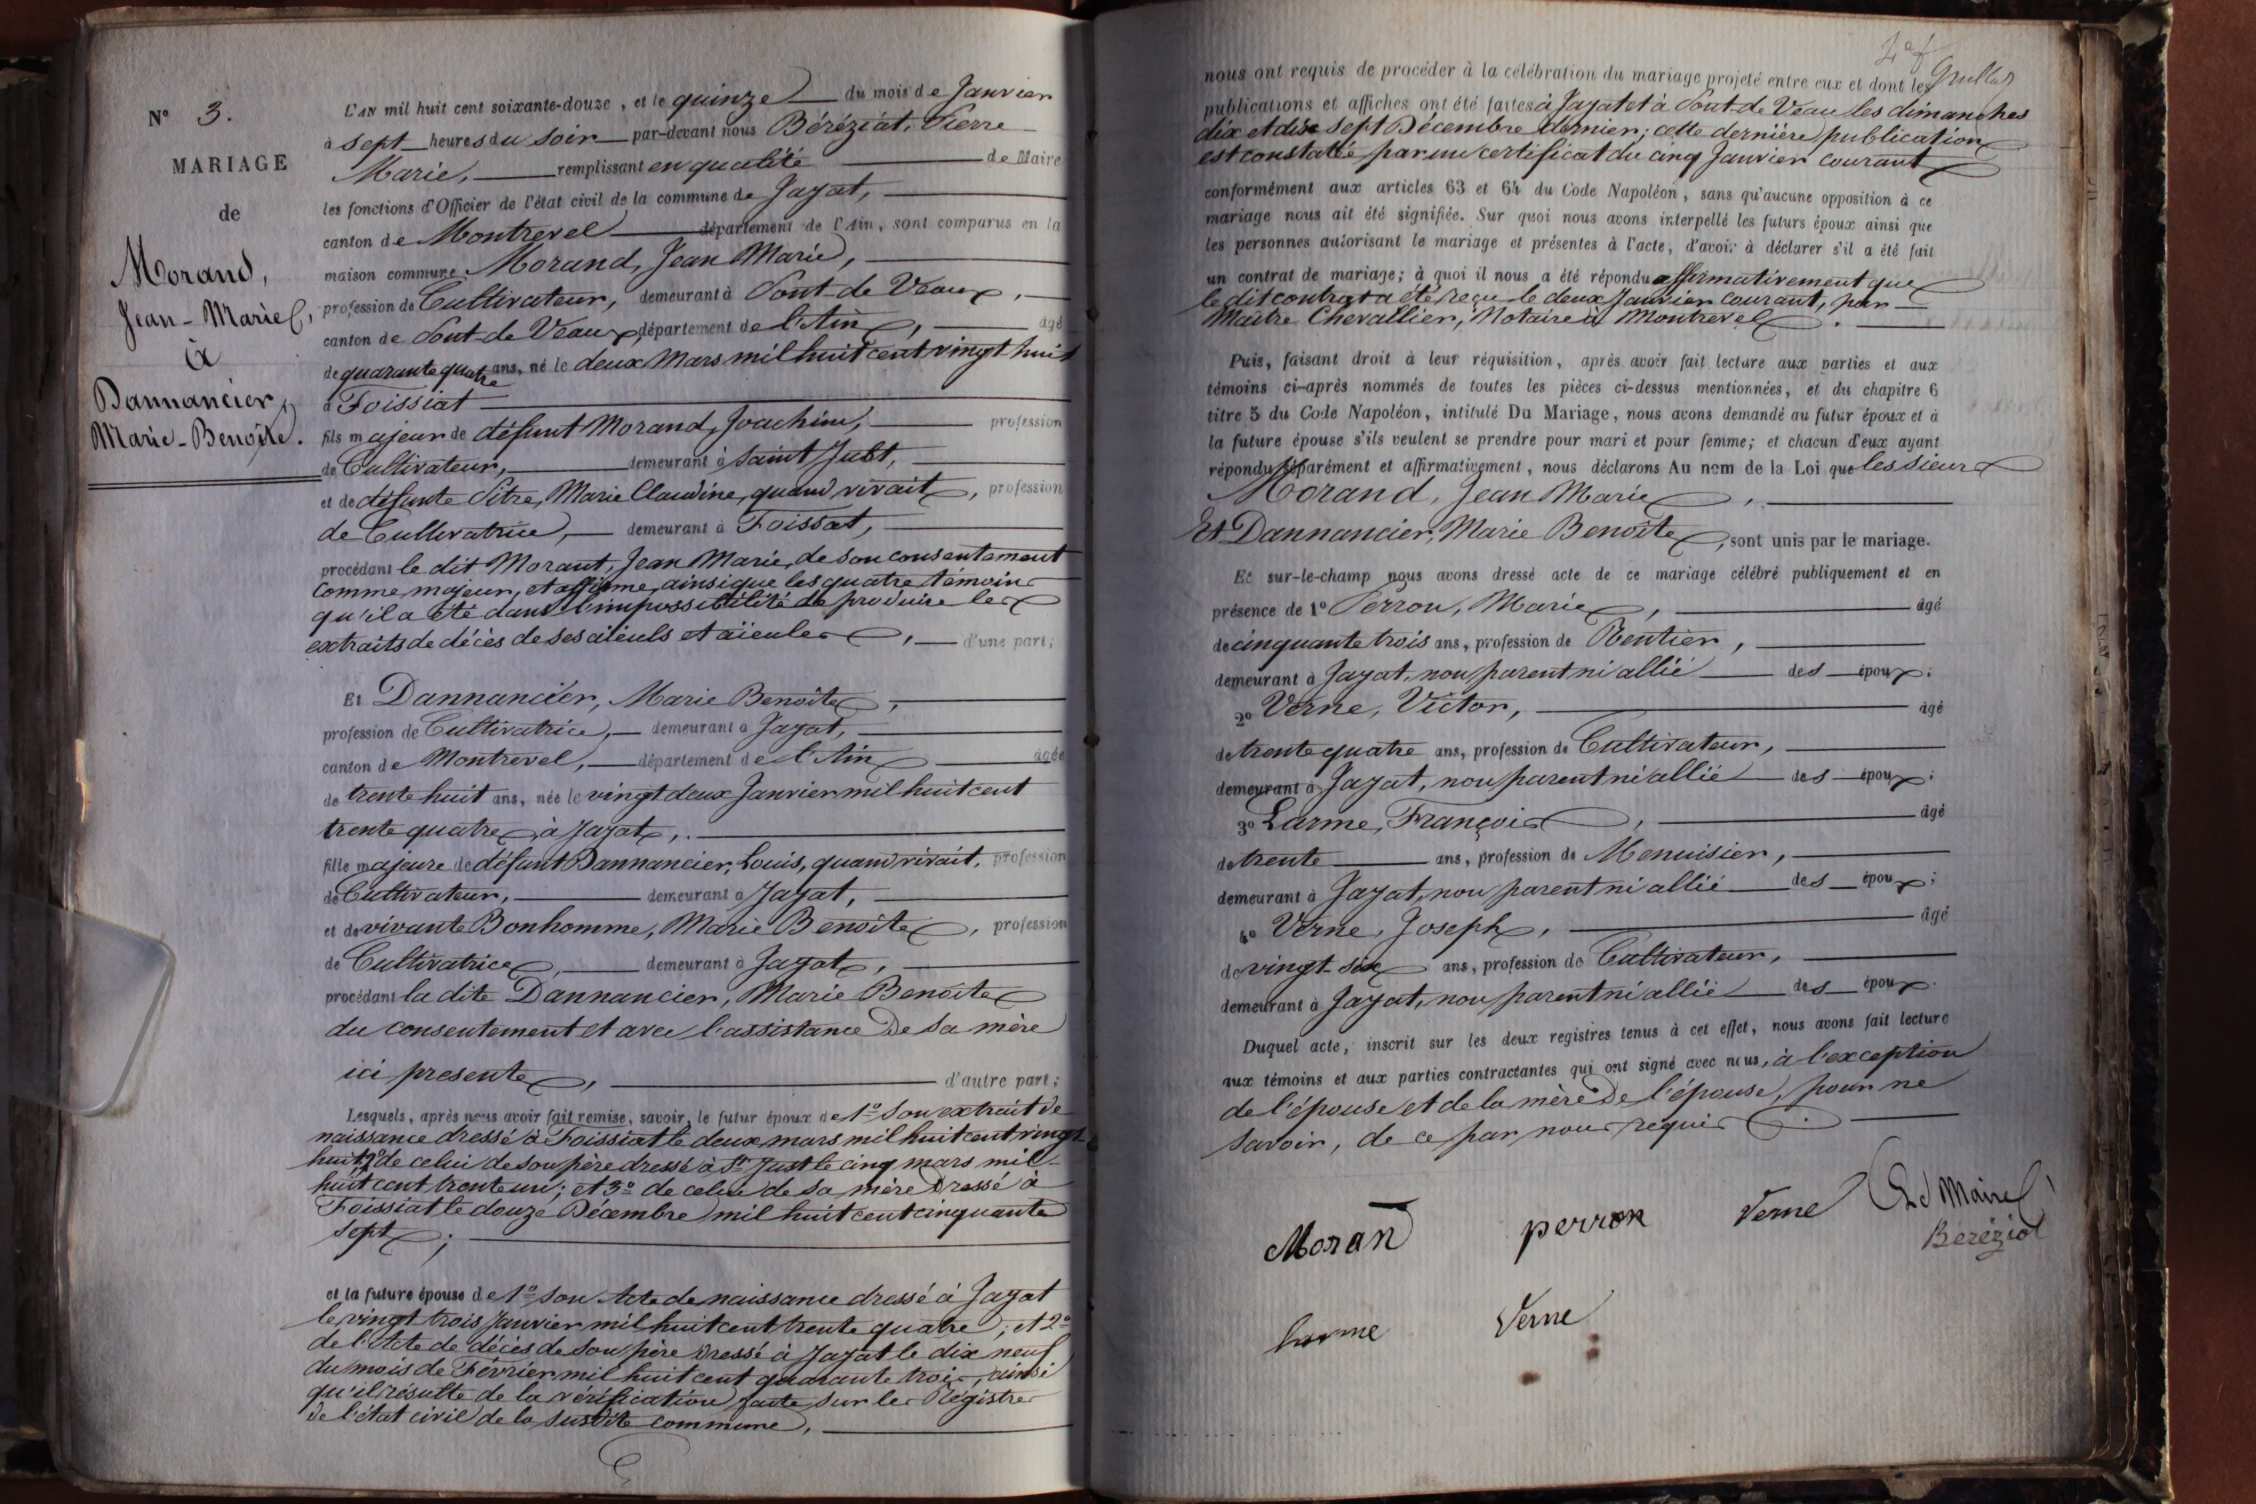 N° 3.
MARIAGE
de
Morand,
Jean-Marie,
&
Dannancier,
Marie-Benoîte.
L'AN mil huit cent soixante-douze, et le quinze du mois de Janvier
à sept heures du soir par-devant nous Béréziat, Pierre
Marie, remplissant en qualité de Maire
les fonctions d'Officier de l'état civil de la commune de Jayat,
canton de Montrevel département de l'Ain, sont comparus en la
maison commune Morand, Jean Marie,
profession de Cultivateur, demeurant à Pont-de Veaux,
canton de Pont-de Veaux, département de l'Ain, âgé
de quarante quatre ans, né le deux Mars mil huit cent vingt huit
à Foissiat
fils majeur de défunt Morand, Joachim, profession
de Cultivateur, demeurant à Saint Just,
et de défunte Pitre, Marie Claudine, quand vivait, profession
de Cultivatrice, demeurant à Foissat,
procédant le dit Morant, Jean Marie, de son consentement
comme majeur, et affirme, ainsi que les quatre témoins
qu'il a été dans l'impossibilité de produire les
extraits de décès de ses aïeuls et aïeules, d'une part;
Et Dannancier, Marie Benoîte,
profession de Cultivatrice, demeurant à Jayat,
canton de Montrevel, département de l'Ain âgée
de trente huit ans, née le vingt deux Janvier mil huit cent
trente quatre à Jayat,
fille majeure de défunt Dannancier, Louis, quand vivait, profession
de Cultivateur, demeurant à Jayat,
et de vivante Bonhomme, Marie Benoîte, profession
de Cultivatrice, demeurant à Jayat,
procédant la dite Dannancier, Marie Benoîte
du consentement et avec l'assistance de sa mère
ici presente, d'autre part;
Lesquels, après nous avoir fait remise, savoir, le futur époux de 1° son extrait de
naissance dressé à Foissiat le deux mars mil huit cent vingt
huit; 2° de celui de son père dressé à St Just le cinq mars mil
huit cent trente un; et 3° de celui de sa mère dressé à
Foissiat le douze Décembre mil huit cent cinquante
sept;
et la future épouse de 1° son Acte de naissance dressé à Jayat
le vingt trois Janvier mil huit cent trente quatre; et 2°
de l'Acte de décès de son père dressé à Jayat le dix neuf
du mois de Février mil huit cent quarante trois, ainsi
qu'il résulte de la vérification faite sur les Régistres
de l'état civil de la susdite commune,
nous ont requis de procéder à la célébration du mariage projeté entre eux et dont les
publications et affiches ont été faites à Jayat et à Pont-de Veau les dimanches
dix et dix sept Décembre dernier; cette dernière publication
est constatée par un certificat du cinq Janvier courant
conformément aux articles 63 et 64 du Code Napoléon, sans qu'aucune opposition à ce
mariage nous ait été signifiée. Sur quoi nous avons interpellé les futurs époux ainsi que
les personnes autorisant le mariage et présentes à l'acte, d'avoir à déclarer s'il a été fait
un contrat de mariage; à quoi il nous a été répondu affirmativement que
le dit contrat a été reçu le deux Janvier courant, par
Maître Chevallier, Notaire à Montrevel.
Puis, faisant droit à leur réquisition, après avoir fait lecture aux parties et aux
témoins ci-après nommés de toutes les pièces ci-dessus mentionnées, et du chapitre 6
titre 5 du Code Napoléon, intitulé Du Mariage, nous avons demandé au futur époux et à
la future épouse s'ils veulent se prendre pour mari et pour femme; et chacun d'eux ayant
répondu séparément et affirmativement, nous déclarons Au nom de la Loi que les sieurs
Morand, Jean Marie,
Et Dannancier, Marie Benoîte, sont unis par le mariage.
Et sur-le-champ nous avons dressé acte de ce mariage célébré publiquement et en
présence de 1° Perron, Marie, âgé
de cinquante trois ans, profession de Rentier,
demeurant à Jayat, non parent ni allié des époux;
2° Verne, Victor, âgé
de trente quatre ans, profession de Cultivateur,
demeurant à Jayat, non parent ni allié des époux;
3° Larme, François, âgé
de trente ans, profession de Menuisier,
demeurant à Jayat, non parent ni allié des époux;
4° Verne, Joseph, âgé
de vingt-six ans, profession de Cultivateur,
demeurant à Jayat, non parent ni allié des époux.
Duquel acte, inscrit sur les deux registres tenus à cet effet, nous avons fait lecture
aux témoins et aux parties contractantes qui ont signé avec nous, à l'exception
de l'épouse et de la mère de l'épouse, pour ne
savoir, de ce par nous requis.
Moran perron Verne Le Maire
Béréziat
larme Verne